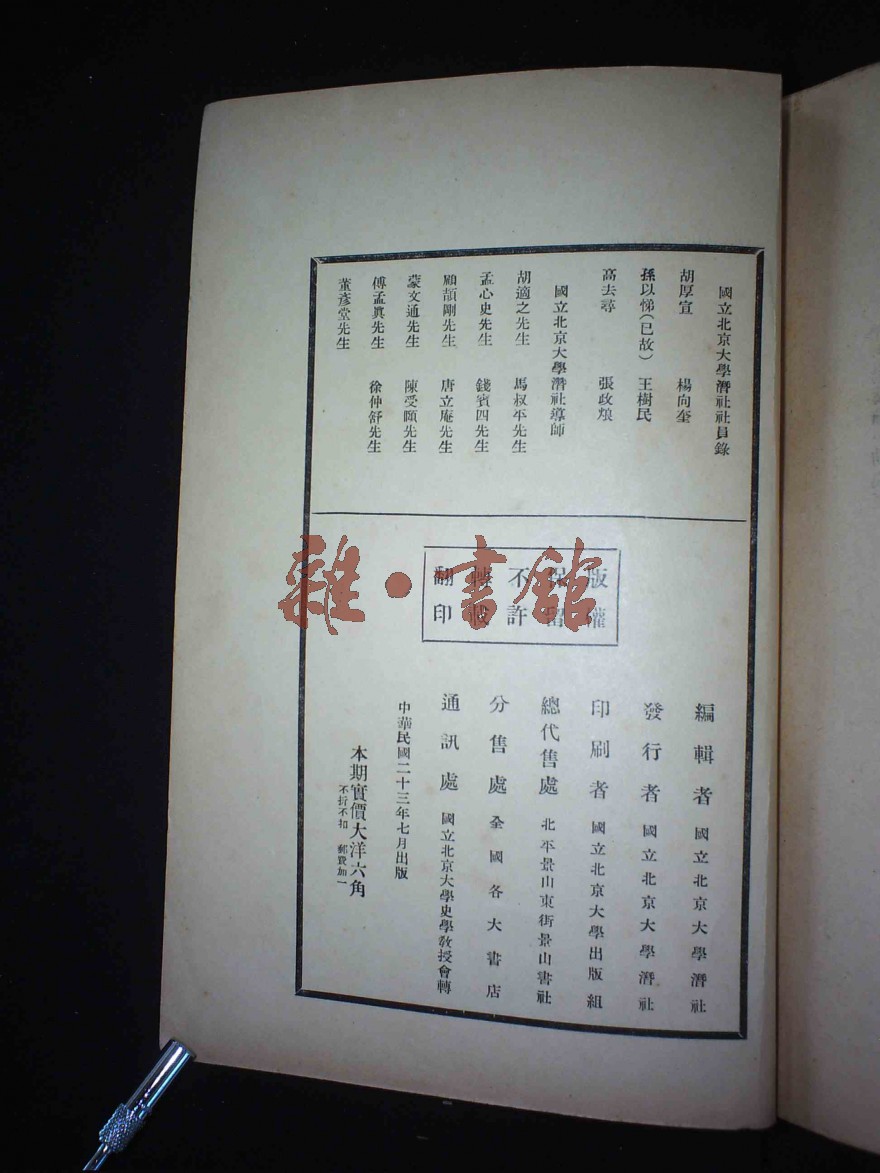 國立北京大學潛社社員錄
胡厚宣　楊向奎
孫以悌（已故）　王樹民
高去尋　張政烺
國立北京大學潛社導師
胡適之先生　馬叔平先生
孟心史先生　錢賓四先生
顧頡剛先生　唐立庵先生
蒙文通先生　陳受頤先生
傅孟眞先生　徐仲舒先生
董彥堂先生
版權
保留
不許
轉載
翻印
編輯者　國立北京大學潛社
發行者　國立北京大學潛社
印刷者　國立北京大學出版組
總代售處　北平景山東街景山書社
分售處　全國各大書店
通訊處　國立北京大學史學教授會轉
中華民國二十三年七月出版
本期實價大洋六角
不折不扣　郵費加一
雜·書館